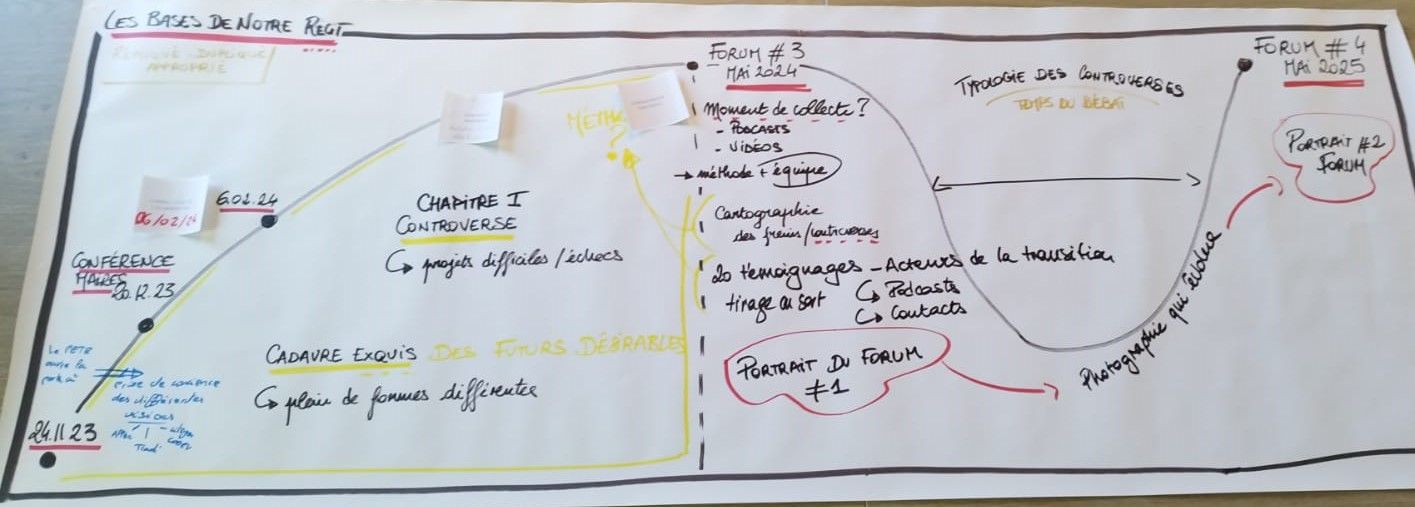 LES BASES DE NOTRE RECIT
APPROPRIÉ
24.11.23
Le PETR
ouvre la
prise de conscience
des différentes
visions
CONFÉRENCE
MAIRES
20.12.23
06/02/24
6.02.24
CHAPITRE I
CONTROVERSE
projets difficiles / échecs
CADAVRE EXQUIS DES FUTURS DÉSIRABLES
plein de formes différentes
?
FORUM # 3
MAI 2024
Moment de collecte ?
- PODCASTS
- VIDÉOS
méthode + équipe
Cartographie
des freins / controverses
20 témoignages - Acteurs de la transition
tirage au sort
Podcasts
Contacts
PORTRAIT DU FORUM
#1
TYPOLOGIE DES CONTROVERSES
TEMPS DU DÉBAT
Photographie qui évolue
FORUM # 4
MAI 2025
PORTRAIT #2
FORUM